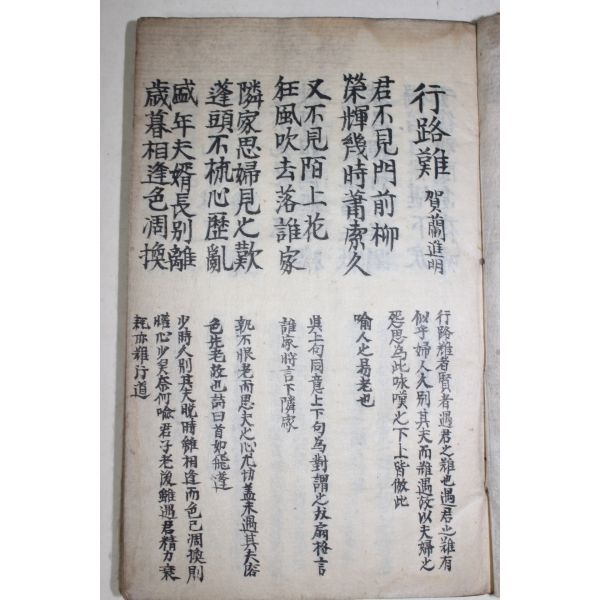 行路難 賀蘭進明
君不見門前柳
榮輝幾時蕭索久
又不見陌上花
狂風吹去落誰家
隣家思婦見之歎
蓬頭不梳心歷亂
盛年夫婿長別離
歲暮相逢色凋換
行路難者賢者遇君之難也遇君之難有
似乎婦人久別其夫而難遇故以夫婦之
怨思為此咏嘆之下上皆倣此
喻人之易老也
上句同意上下句為對謂之扇格言
誰家將言下隣家
不恨老而思夫之心尤切盖未遇其夫容
色先老故也詩曰首如飛蓬
少時人別其夫晚時雖相逢而色已凋換則
心少奈何喻君子老後雖遇君精力衰
耗亦難行道